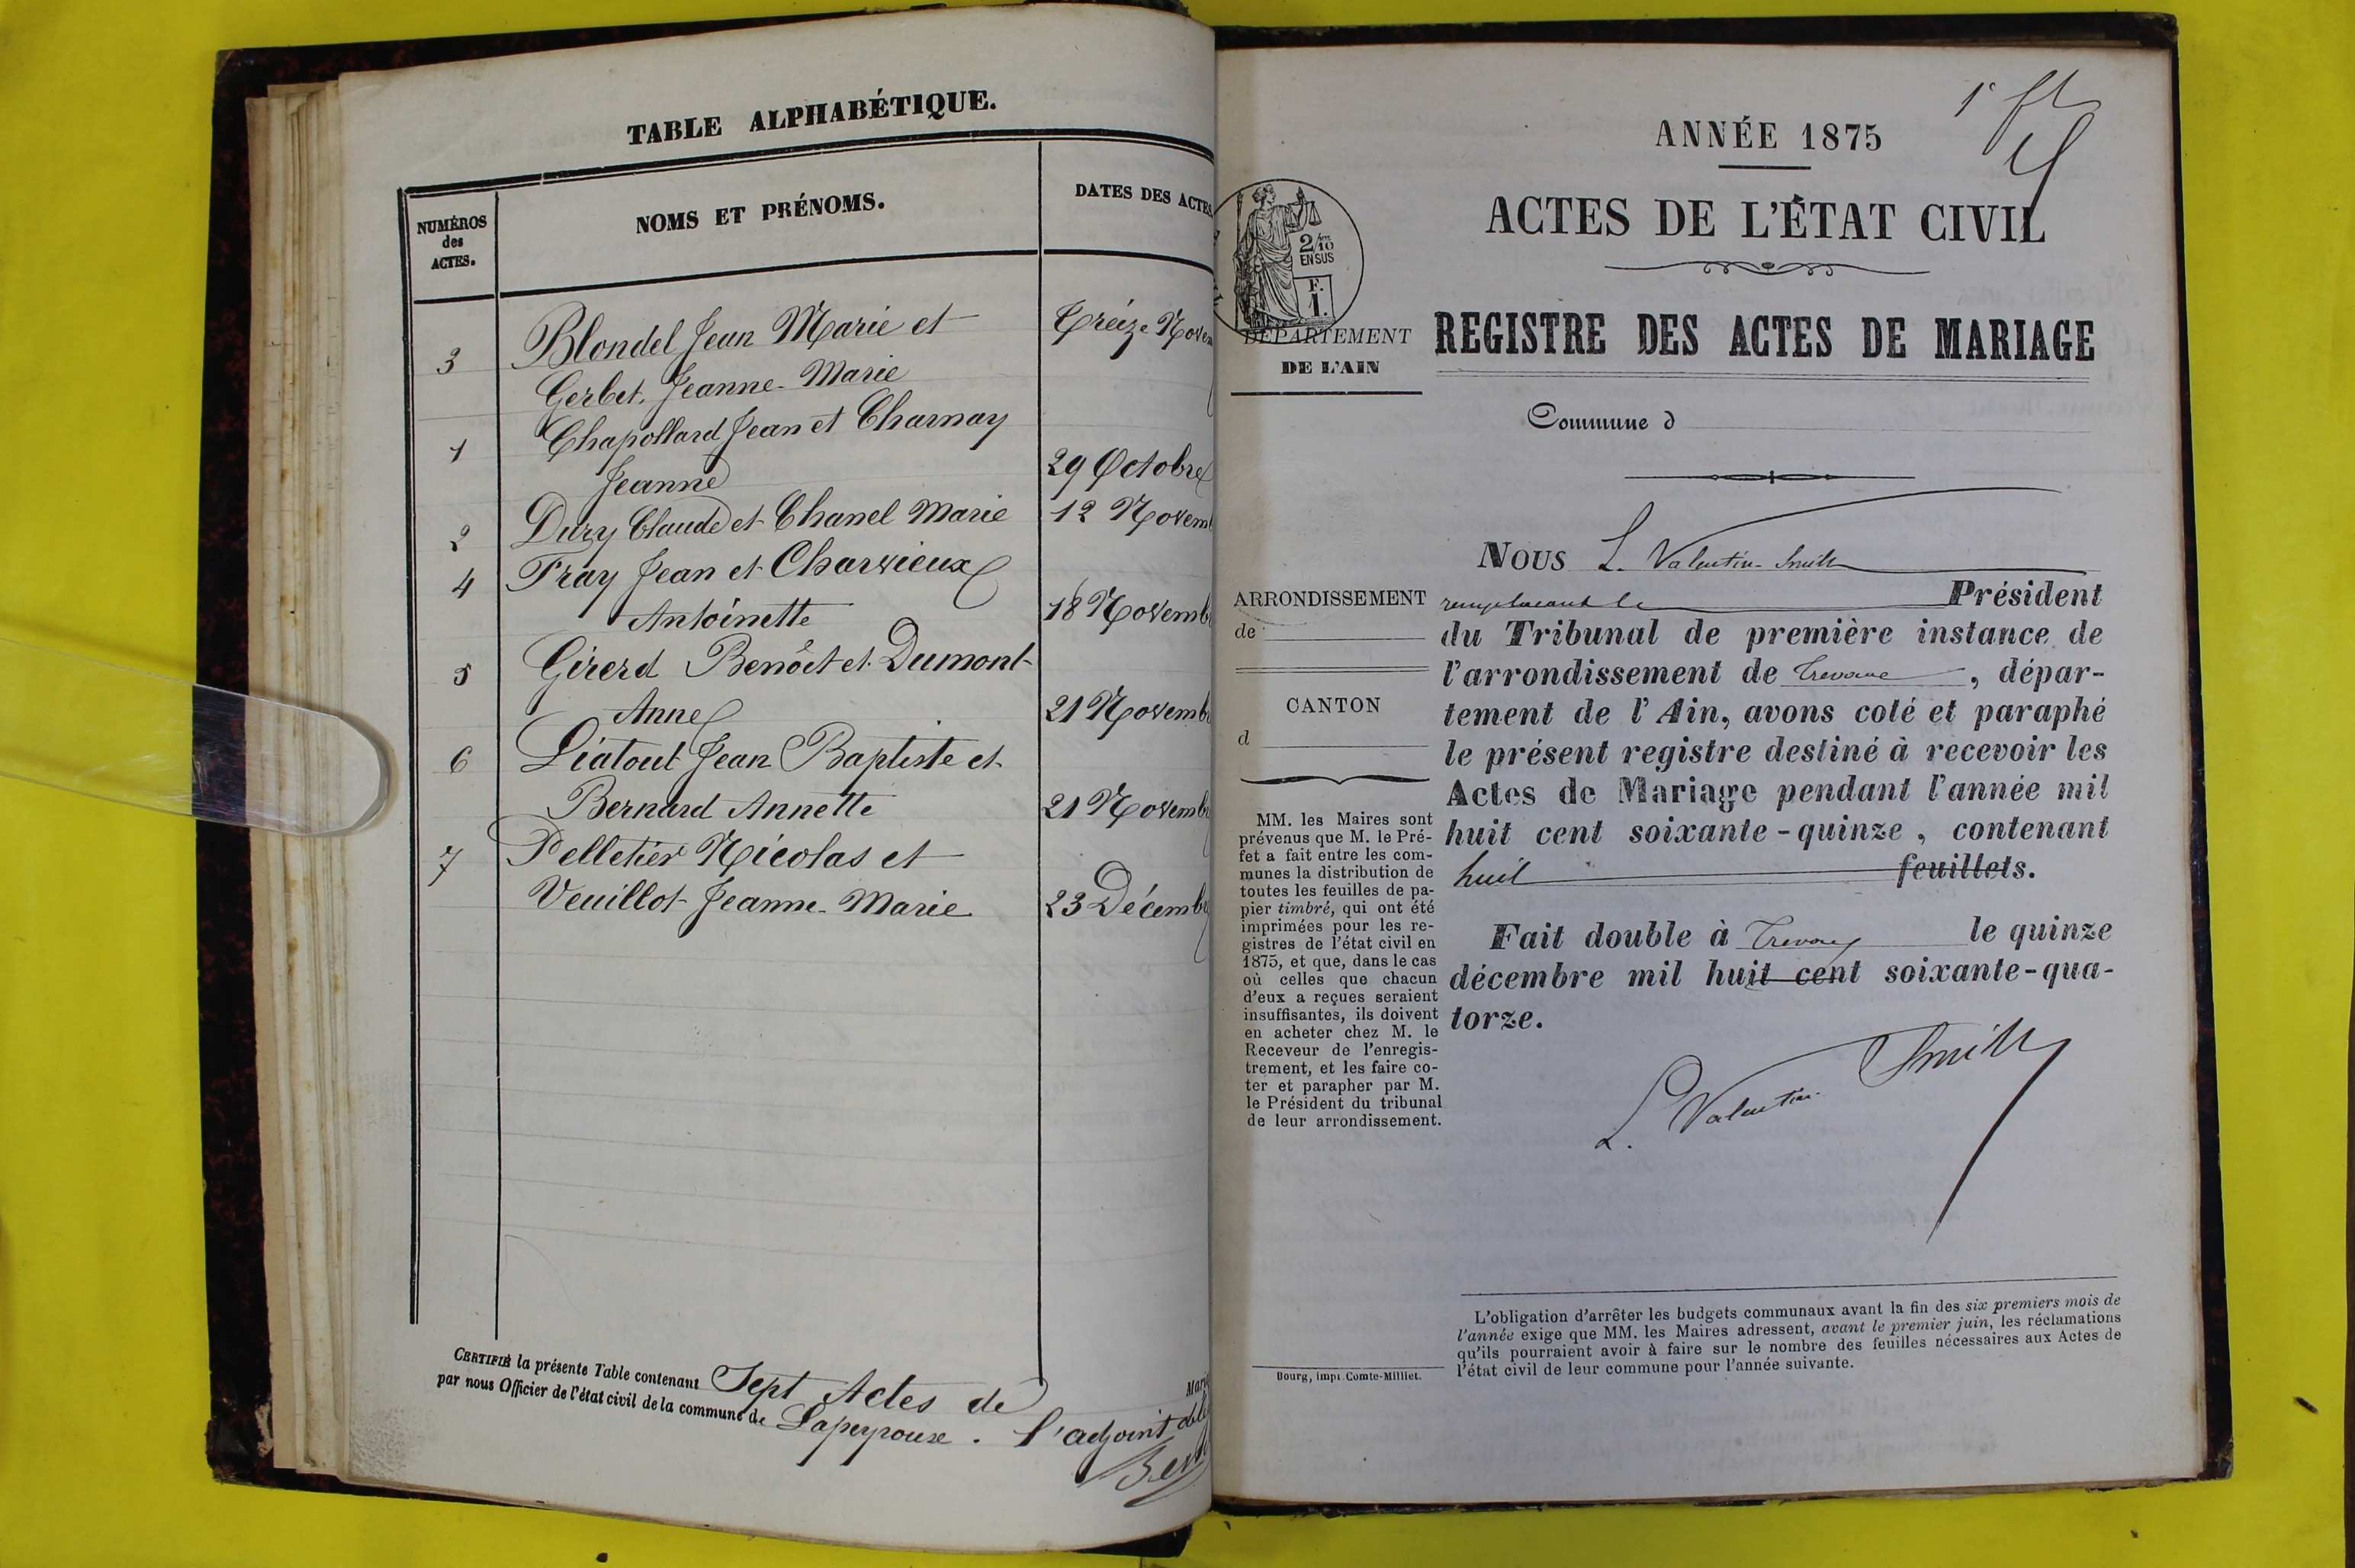 TABLE ALPHABÉTIQUE.
NUMÉROS
des
ACTES.
NOMS ET PRÉNOMS.
DATES DES ACTES
3
Blondel Jean Marie et
Treize Novem
Gerbet, Jeanne-Marie
1
Chapollard Jean et Charnay
Jeanne
29 Octobre
2
Dury Claude et Chanel Marie
12 Novem
4
Fray Jean et Charvieux
Antoinette
18 Novemb
5
Girerd Benoît et Dumont
Anne
21 Novemb
6
Liatout Jean Baptiste et
Bernard Annette
21 Novemb
7
Pelletier Nicolas et
Veuillot Jeanne-Marie
23 Décemb
CERTIFIÉ la présente Table contenant Sept Actes de Mari
par nous Officier de l'état civil de la commune de Lapeyrouse. l'adjoint
ANNÉE 1875
ACTES DE L'ÉTAT CIVIL
2/10
EN SUS
F.
1.
DÉPARTEMENT
DE L'AIN
REGISTRE DES ACTES DE MARIAGE
Commune d
ARRONDISSEMENT
de
CANTON
d
MM. les Maires sont
prévenus que M. le Pré-
fet a fait entre les com-
munes la distribution de
toutes les feuilles de pa-
pier timbré, qui ont été
imprimées pour les re-
gistres de l'état civil en
1875, et que, dans le cas
où celles que chacun
d'eux a reçues seraient
insuffisantes, ils doivent
en acheter chez M. le
Receveur de l'enregis-
trement, et les faire co-
ter et parapher par M.
le Président du tribunal
de leur arrondissement.
NOUS L. Valentin-Smith
remplacant le Président
du Tribunal de première instance de
l'arrondissement de Trevoux, dépar-
tement de l'Ain, avons coté et paraphé
le présent registre destiné à recevoir les
Actes de Mariage pendant l'année mil
huit cent soixante-quinze, contenant
huit feuillets.
Fait double à Trevoux le quinze
décembre mil huit cent soixante-qua-
torze.
L. Valentin Smith
L'obligation d'arrêter les budgets communaux avant la fin des six premiers mois de
l'année exige que MM. les Maires adressent, avant le premier juin, les réclamations
qu'ils pourraient avoir à faire sur le nombre des feuilles nécessaires aux Actes de
l'état civil de leur commune pour l'année suivante.
Bourg, impr. Comte-Milliet.